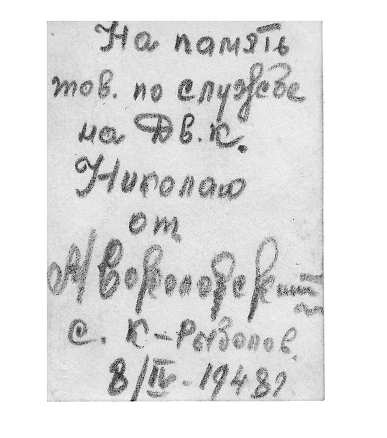 На память
тов. по службе
на Дв.К.
Николаю
от
с. К-Рыболов.
8/IV-1948г